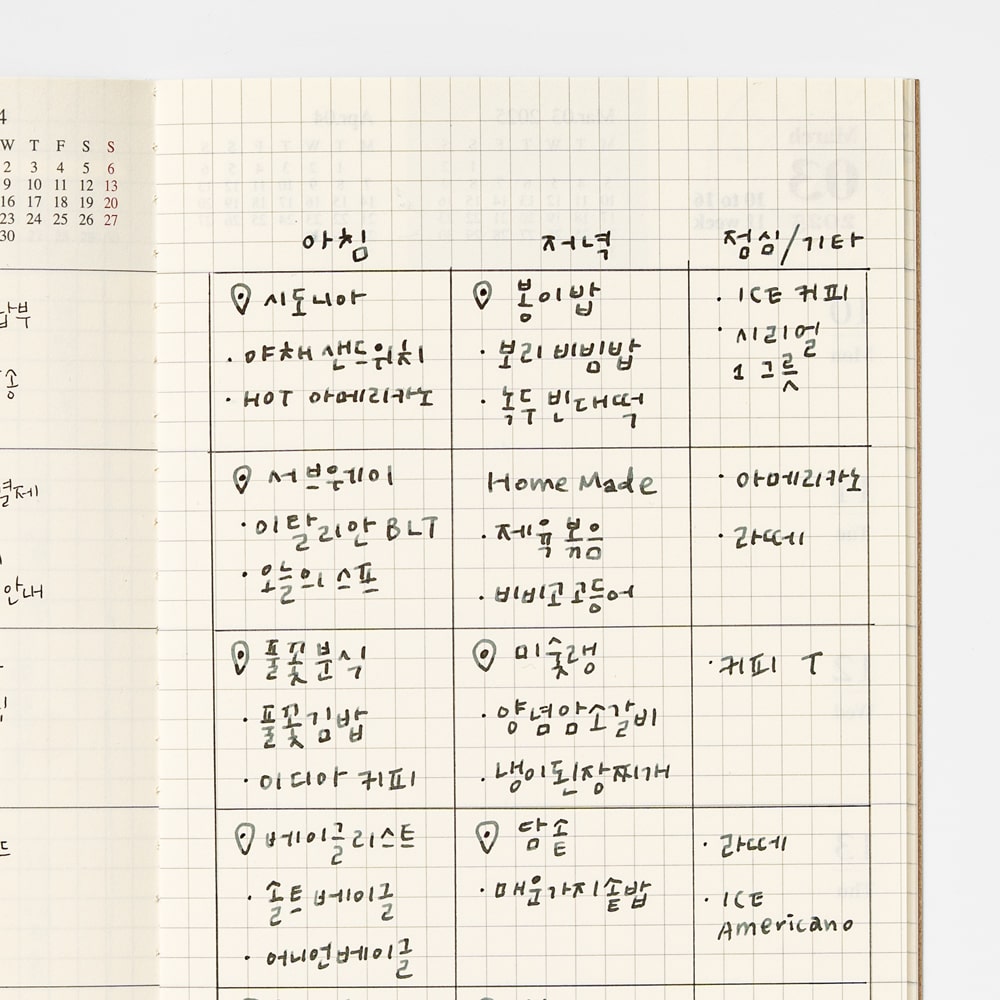 4
W T F S S
2 3 4 5 6
9 10 11 12 13
16 17 18 19 20
23 24 25 26 27
30
아침 저녁 점심/기타
시도니아
· 야채 샌드위치
· HOT 아메리카노
봉이밥
· 보리 비빔밥
· 녹두 빈대떡
· ICE 커피
· 시리얼
1 그릇
서브웨이
· 이탈리안 BLT
· 오늘의 스프
Home Made
· 제육볶음
· 비비고 고등어
· 아메리카노
· 라떼
풀꽃분식
· 풀꽃김밥
· 이디아 커피
미숯랭
· 양념암소갈비
· 냉이된장찌개
· 커피 T
베이글리스트
· 솔트 베이글
· 어니언베이글
담솥
· 매운가지솥밥
· 라떼
· ICE
Americano
납부
송
결제
안내